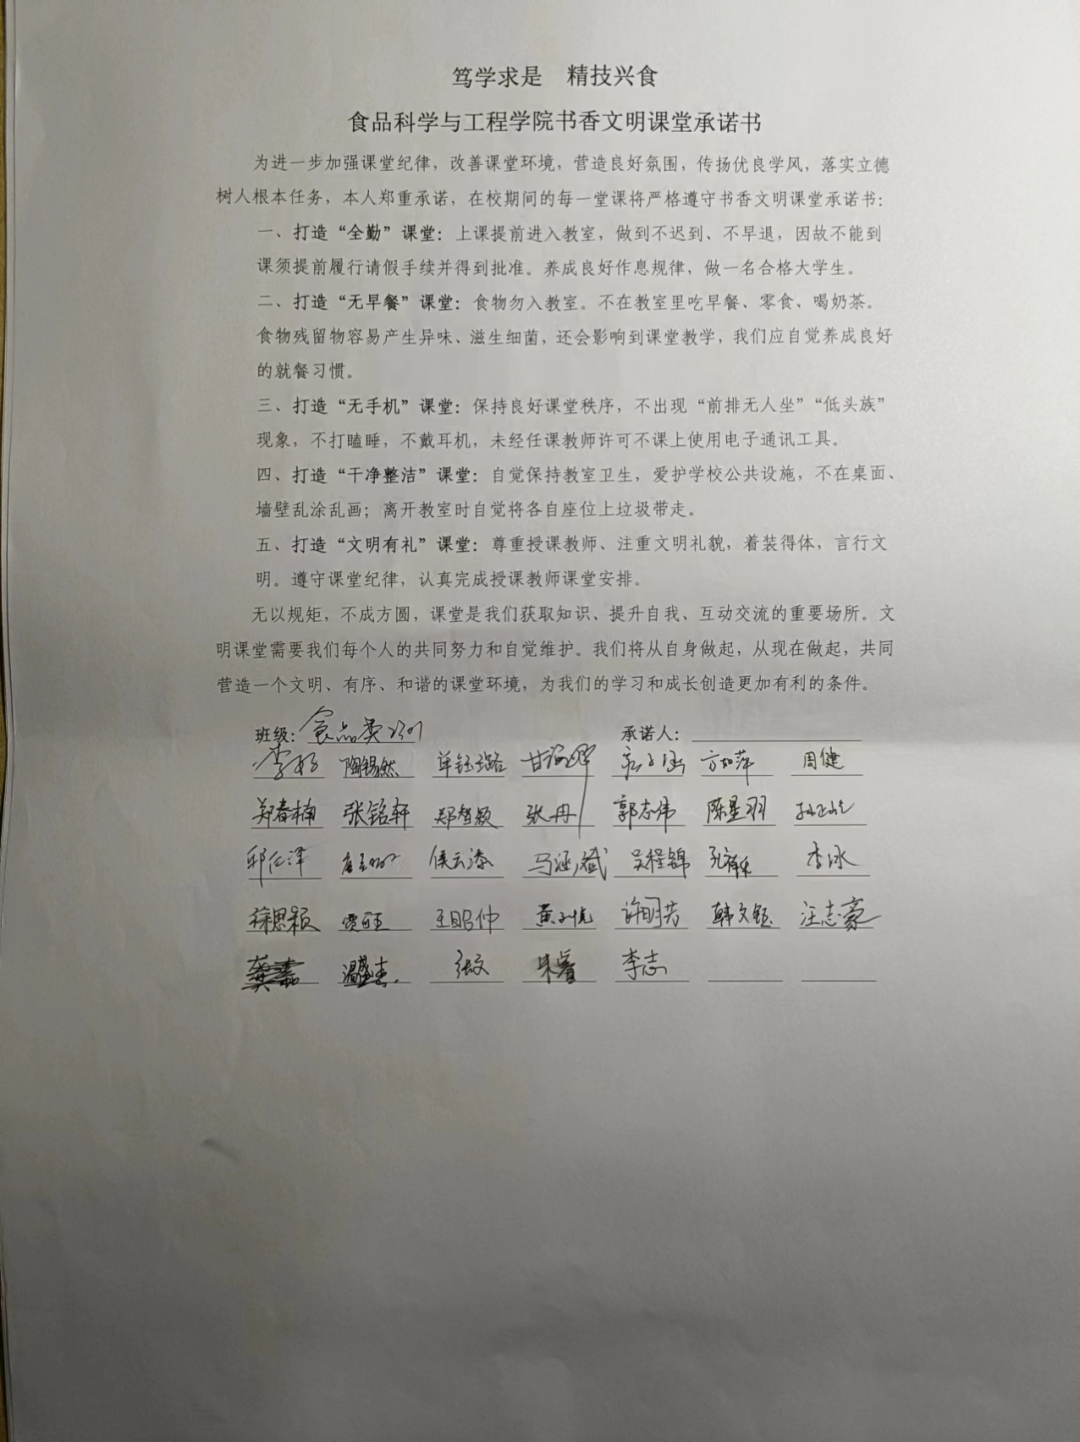 笃学求是 精技兴食
食品科学与工程学院书香文明课堂承诺书
为进一步加强课堂纪律，改善课堂环境，营造良好氛围，传扬优良学风，落实立德
树人根本任务，本人郑重承诺，在校期间的每一堂课将严格遵守书香文明课堂承诺书：
一、打造“全勤”课堂：上课提前进入教室，做到不迟到、不早退，因故不能到
课须提前履行请假手续并得到批准。养成良好作息规律，做一名合格大学生。
二、打造“无早餐”课堂：食物勿入教室。不在教室里吃早餐、零食、喝奶茶。
食物残留物容易产生异味、滋生细菌，还会影响到课堂教学，我们应自觉养成良好
的就餐习惯。
三、打造“无手机”课堂：保持良好课堂秩序，不出现“前排无人坐”“低头族”
现象，不打瞌睡，不戴耳机，未经任课教师许可不课上使用电子通讯工具。
四、打造“干净整洁”课堂：自觉保持教室卫生，爱护学校公共设施，不在桌面、
墙壁乱涂乱画；离开教室时自觉将各自座位上垃圾带走。
五、打造“文明有礼”课堂：尊重授课教师、注重文明礼貌，着装得体，言行文
明。遵守课堂纪律，认真完成授课教师课堂安排。
无以规矩，不成方圆，课堂是我们获取知识、提升自我、互动交流的重要场所。文
明课堂需要我们每个人的共同努力和自觉维护。我们将从自身做起，从现在做起，共同
营造一个文明、有序、和谐的课堂环境，为我们的学习和成长创造更加有利的条件。
班级：食品类 承诺人：
陶锡然 方如萍 周健
郑春楠 张铭轩 郑智颖 张丹 郭志伟 陈星羽
吴程锦 李冰
徐思颖 王昭仲 韩文钰 汪志豪
李志